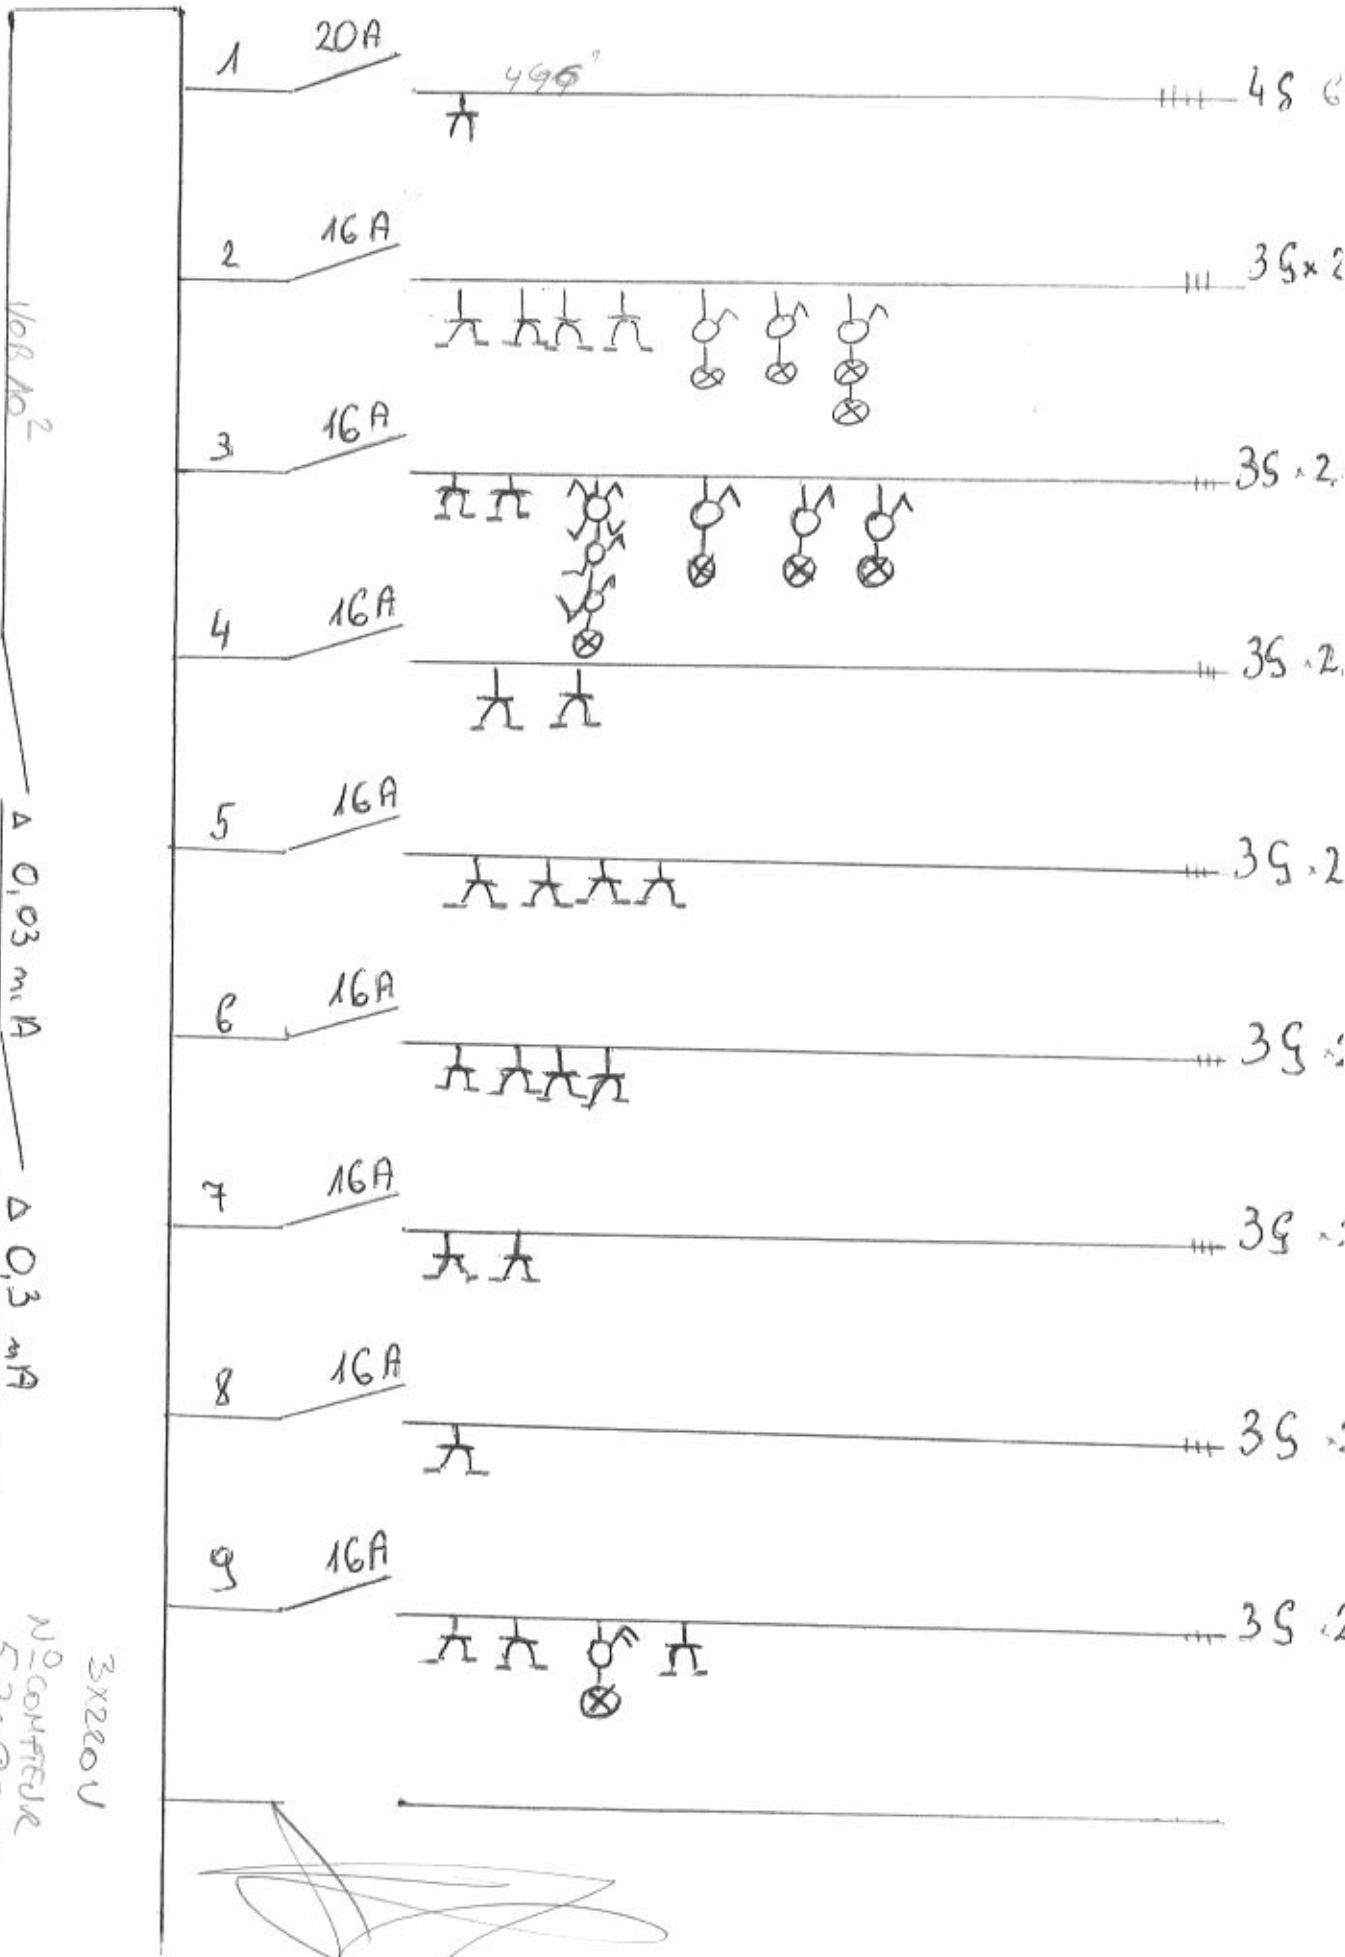 1 20A 4G6? 4G 6
2 16A 3G×2
3 16A 3G×2.
4 16A 3G×2.
5 16A 3G×2
6 16A 3G
7 16A 3G
8 16A 3G
9 16A 3G×2
VOB 10²
Δ 0,03 mA
Δ 0,3 mA
3X220V
Nº COMPTEUR